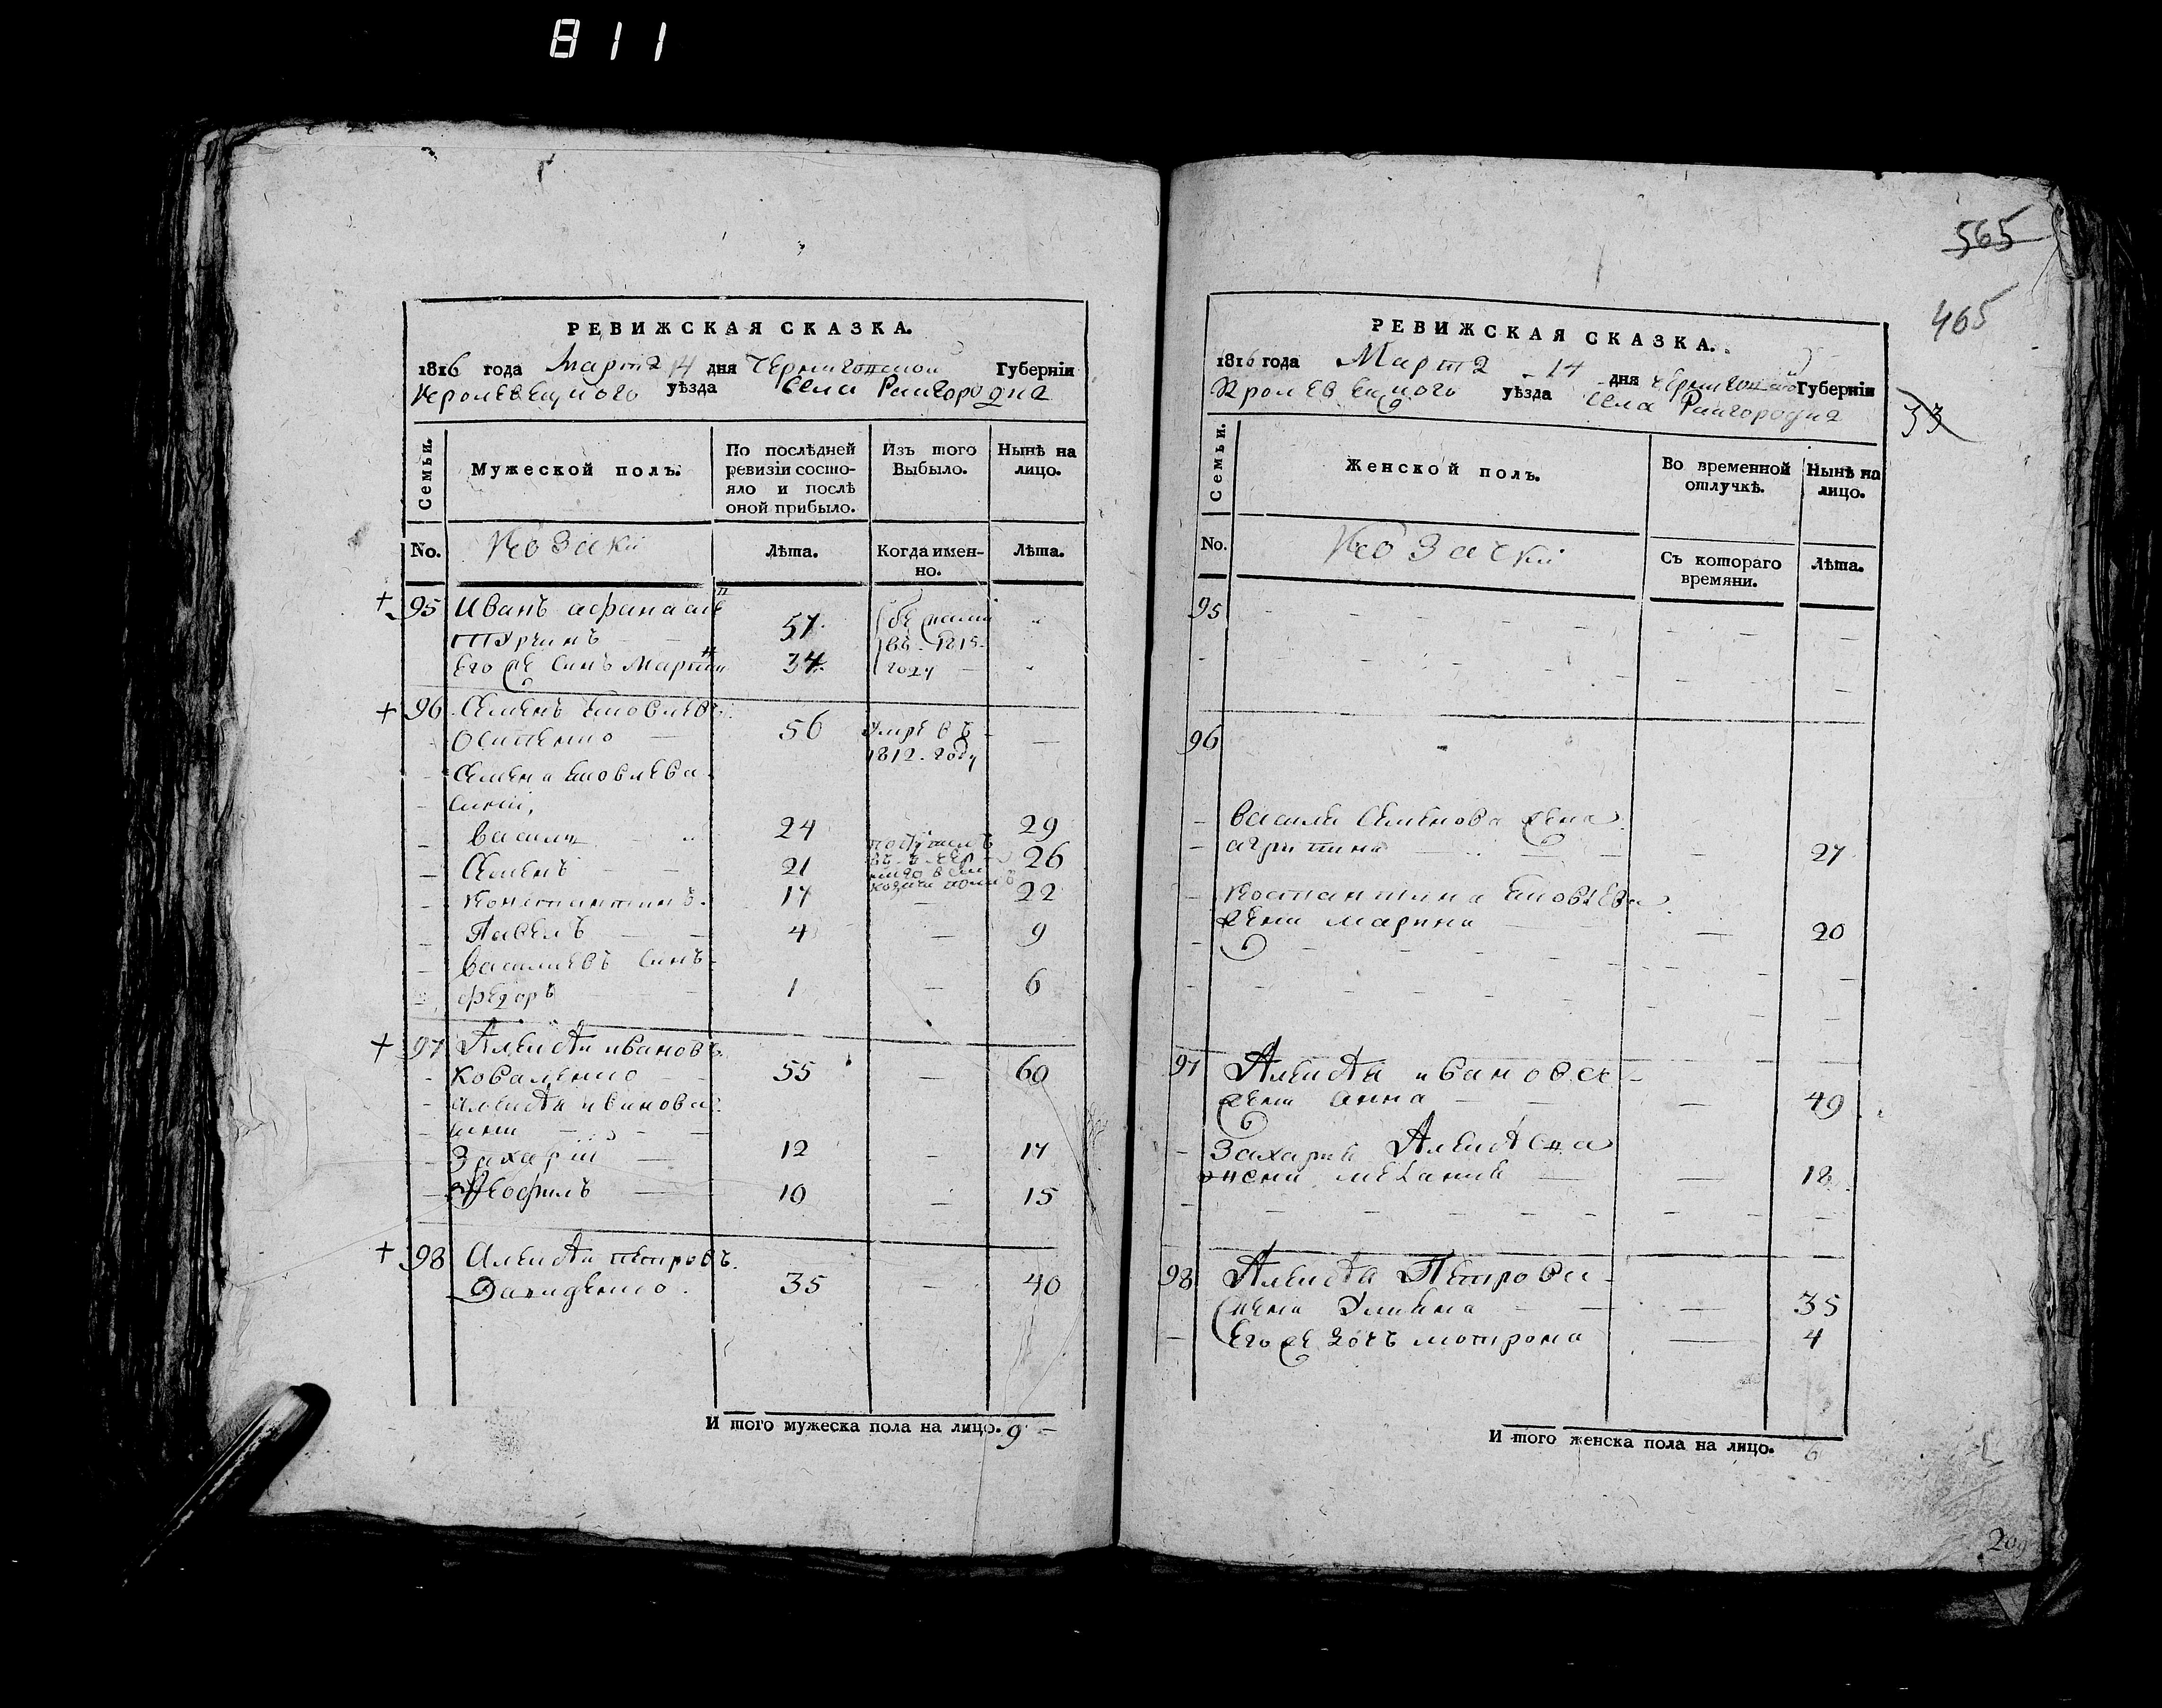 811
РЕВИЖСКАЯ СКАЗКА.
1816 года Марта 14 дня Черниговской Губерніи
Кролевецкого уѣзда Села Райгородка
Семьи.
Мужеской полъ.
По послѣдней ревизіи состо-
яло и послѣ
оной прибыло.
Изъ того
Выбыло.
Нынѣ на
лицо.
No.
Козаки
Лѣта.
Когда имен-
но.
Лѣта.
95 Иванъ Афанасіев
Турчинъ 57 бежали
въ 1815
Его же синъ Мартин 34 году
96 Семенъ Яковлевъ
Осипенко 56 умре въ
1812 году
Семена Яковлева
сини,
Василій 24 29
Семенъ 21 26
Константинъ 17 22
Павелъ 4 9
Василіевъ синъ
Федоръ 1 6
97 Алексѣй Ивановъ
Коваленко 55 60
Алексѣя Иванова
сини
Захарій 12 17
Феофилъ 10 15
98 Алексѣй Петровъ
Давиденко 35 40
И того мужеска пола на лицо. 9
565
465
33
РЕВИЖСКАЯ СКАЗКА.
1816 года Марта 14 дня Черниговской Губерніи
Кролевецкого уѣзда Села Райгородка
Семьи.
Женской полъ.
Во временной
отлучкѣ.
Нынѣ на
лицо.
No.
Козачки
Съ котораго
времяни.
Лѣта.
95
96
Василя Семенова жена
Агрипина 27
Костантина Яковлева
жена Марина 20
97 Алексѣя Иванова
жена Анна 49
Захарія Алексѣева
жена Меланія 18
98 Алексѣя Петрова
жена Улияна 35
Его же дочъ Мотрона 4
И того женска пола на лицо. 6
209